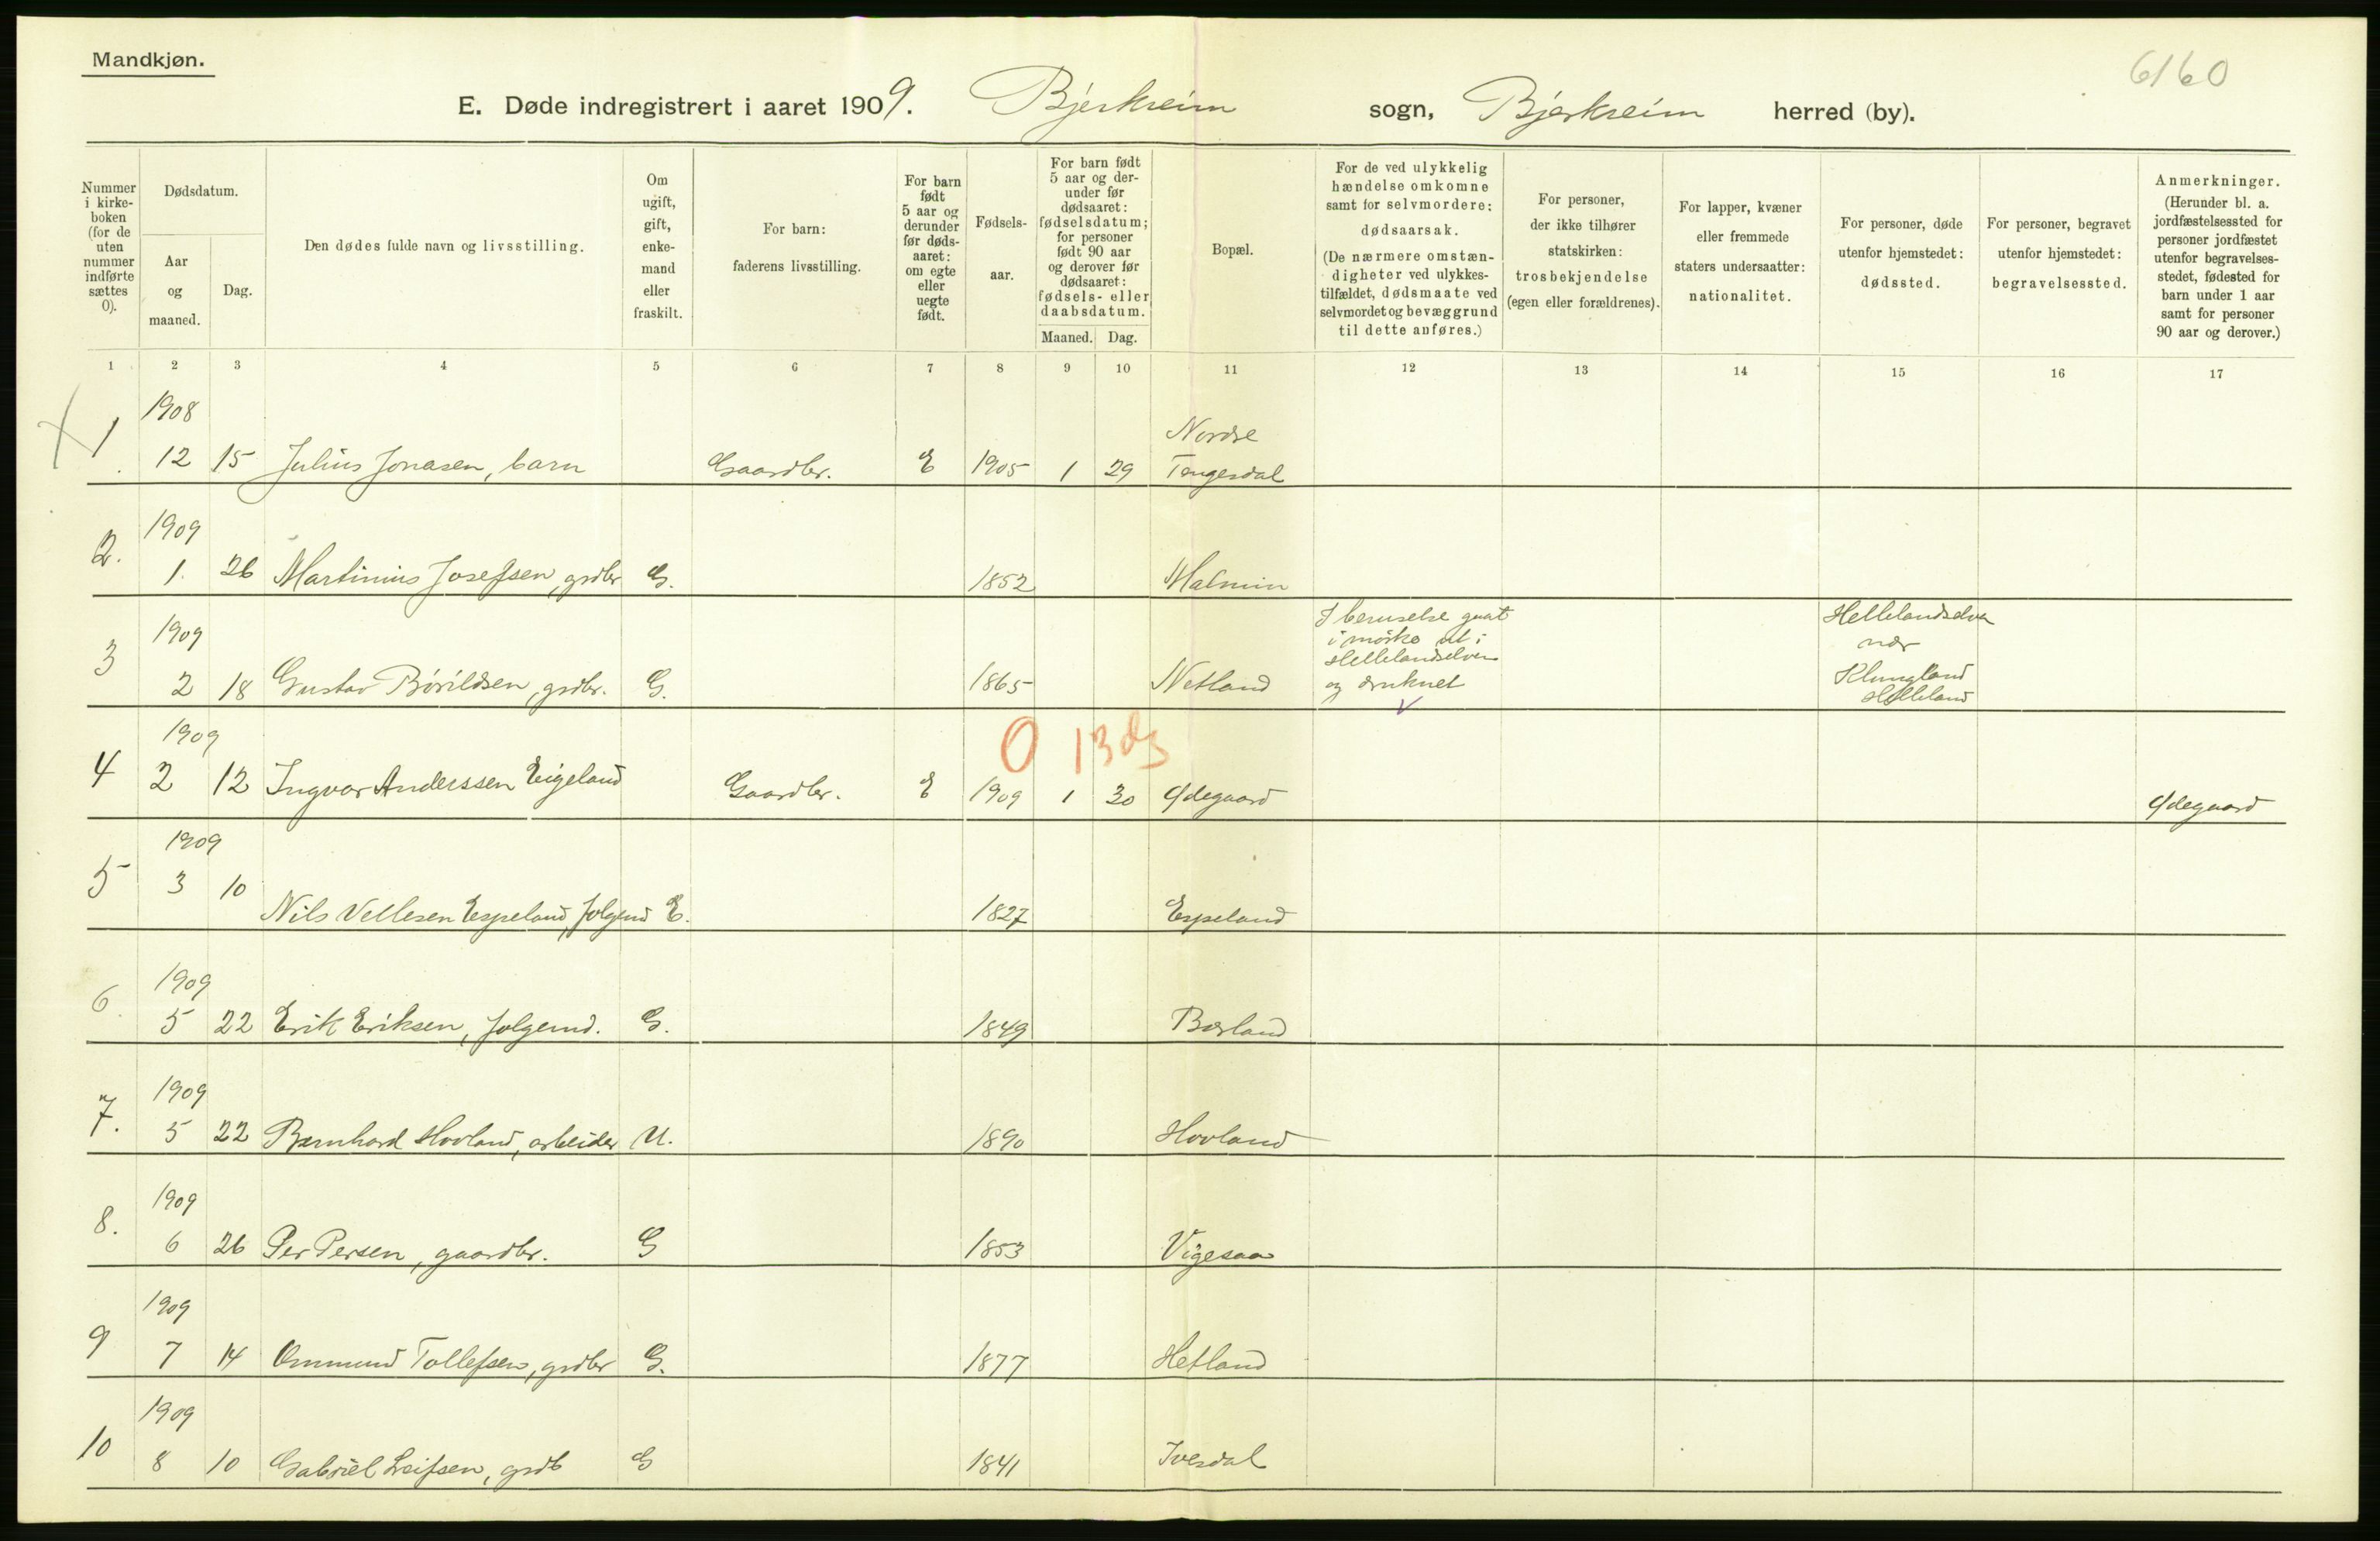 Mandkjøn.
6160
E. Døde indregistrert i aaret 1909. Bjerkreim sogn, Bjerkreim herred (by).
Nummer i kirke-boken (for de uten nummer indførte sættes 0).
Dødsdatum.
Aar og maaned.
Dag.
Den dødes fulde navn og livsstilling.
Om ugift, gift, enke-mand eller fraskilt.
For barn: faderens livsstilling.
For barn født 5 aar og derunder før døds-aaret: om egte eller uegte født.
Fødsels-aar.
For barn født 5 aar og der-under før dødsaaret: fødselsdatum; for personer født 90 aar og derover før dødsaaret: fødsels- eller daabsdatum.
Maaned. Dag.
Bopæl.
For de ved ulykkelig hændelse omkomne samt for selvmordere: dødsaarsak. (De nærmere omstæn-digheter ved ulykkes-tilfældet, dødsmaate ved selvmordet og bevæggrund til dette anføres.)
For personer, der ikke tilhører statskirken: trosbekjendelse (egen eller forældrenes).
For lapper, kvæner eller fremmede staters undersaatter: nationalitet.
For personer, døde utenfor hjemstedet: dødssted.
For personer, begravet utenfor hjemstedet: begravelsessted.
Anmerkninger. (Herunder bl. a. jordfæstelsessted for personer jordfæstet utenfor begravelses-stedet, fødested for barn under 1 aar samt for personer 90 aar og derover.)
1 2 3 4 5 6 7 8 9 10 11 12 13 14 15 16 17
1908
Nordre
1 12 15 Julius Jonasen, barn Gaardbr. E 1905 1 29 Tengesdal
1909
2. 1. 26 Martinius Josefsen, grdbr G. 1852 Malmin
1909
I beruselse gaat
i mørke ut i
Hellelandselven
og druknet
Hellelandselven
nær
Klungland
Helleland
3 2 18 Gustav Bórildsen, grdbr. G. 1865 Netland
1909
0 13 ds
4 2 12 Ingvar Anderssen Eigeland Gaardbr. E 1909 1 30 Ødegaard Ødegaard
1909
5 3 10 Nils Vellesen Espeland, folgemd E. 1827 Espeland
1909
6. 5 22 Erik Eriksen, folgemd. G. 1849 Birland
1909
7. 5 22 Bernhard Hovland, arbeider U. 1890 Hovland
1909
8. 6 26 Per Persen, gaardbr. G 1853 Vigesaa
1909
9 7 14 Ommund Tollefsen, grdbr G. 1877 Hetland
1909
10 8 10 Gabriel Leifsen, grdb G 1841 Ivesdal